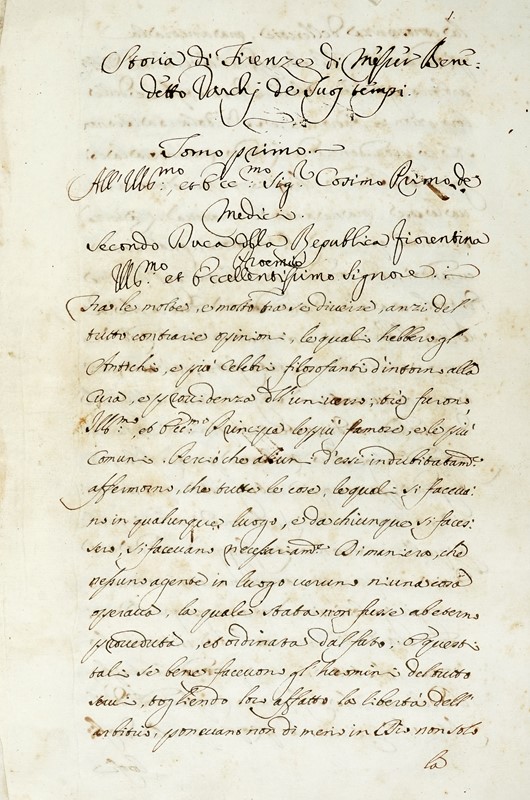 1
Storia di Firenze di Messer Bene:
detto Varchi de Suoj tempi.
Tomo primo.
All' Ill.mo, et Ecc.mo Sig.r Cosimo Primo de
Medici.
Secondo Duca della Republica fiorentina
Proemio
Ill.mo et Eccellentissimo Signore.
Fra le molte, e molto fra se diverse, anzi del
tutto contrarie opinioni, le quali hebbero gl'
Antichi, e più Celebri filosofanti d'intorno alla
Cura, e providenza dell'universo, tre furono
Ill.mo, et Ecc.mo Principe le più famose, e le più
Comuni. Perciòche alcuni d'essi indubitatam.te
affermorno, che tutte le cose, le quali si faceva:
no in qualunque luogo, e da chiunque si faces:
sero, si facevano necessariam.te Di maniera, che
nessuno agente in luogo veruno niuna cosa
operava, la quale stata non fusse abeterno
proveduta, et ordinata dal fato. E questi
tali se bene facevon gl'huomini del tutto
servi, togliendo loro affatto la libertà dell'
arbitrio, ponevano non di meno in Dio non solo
la